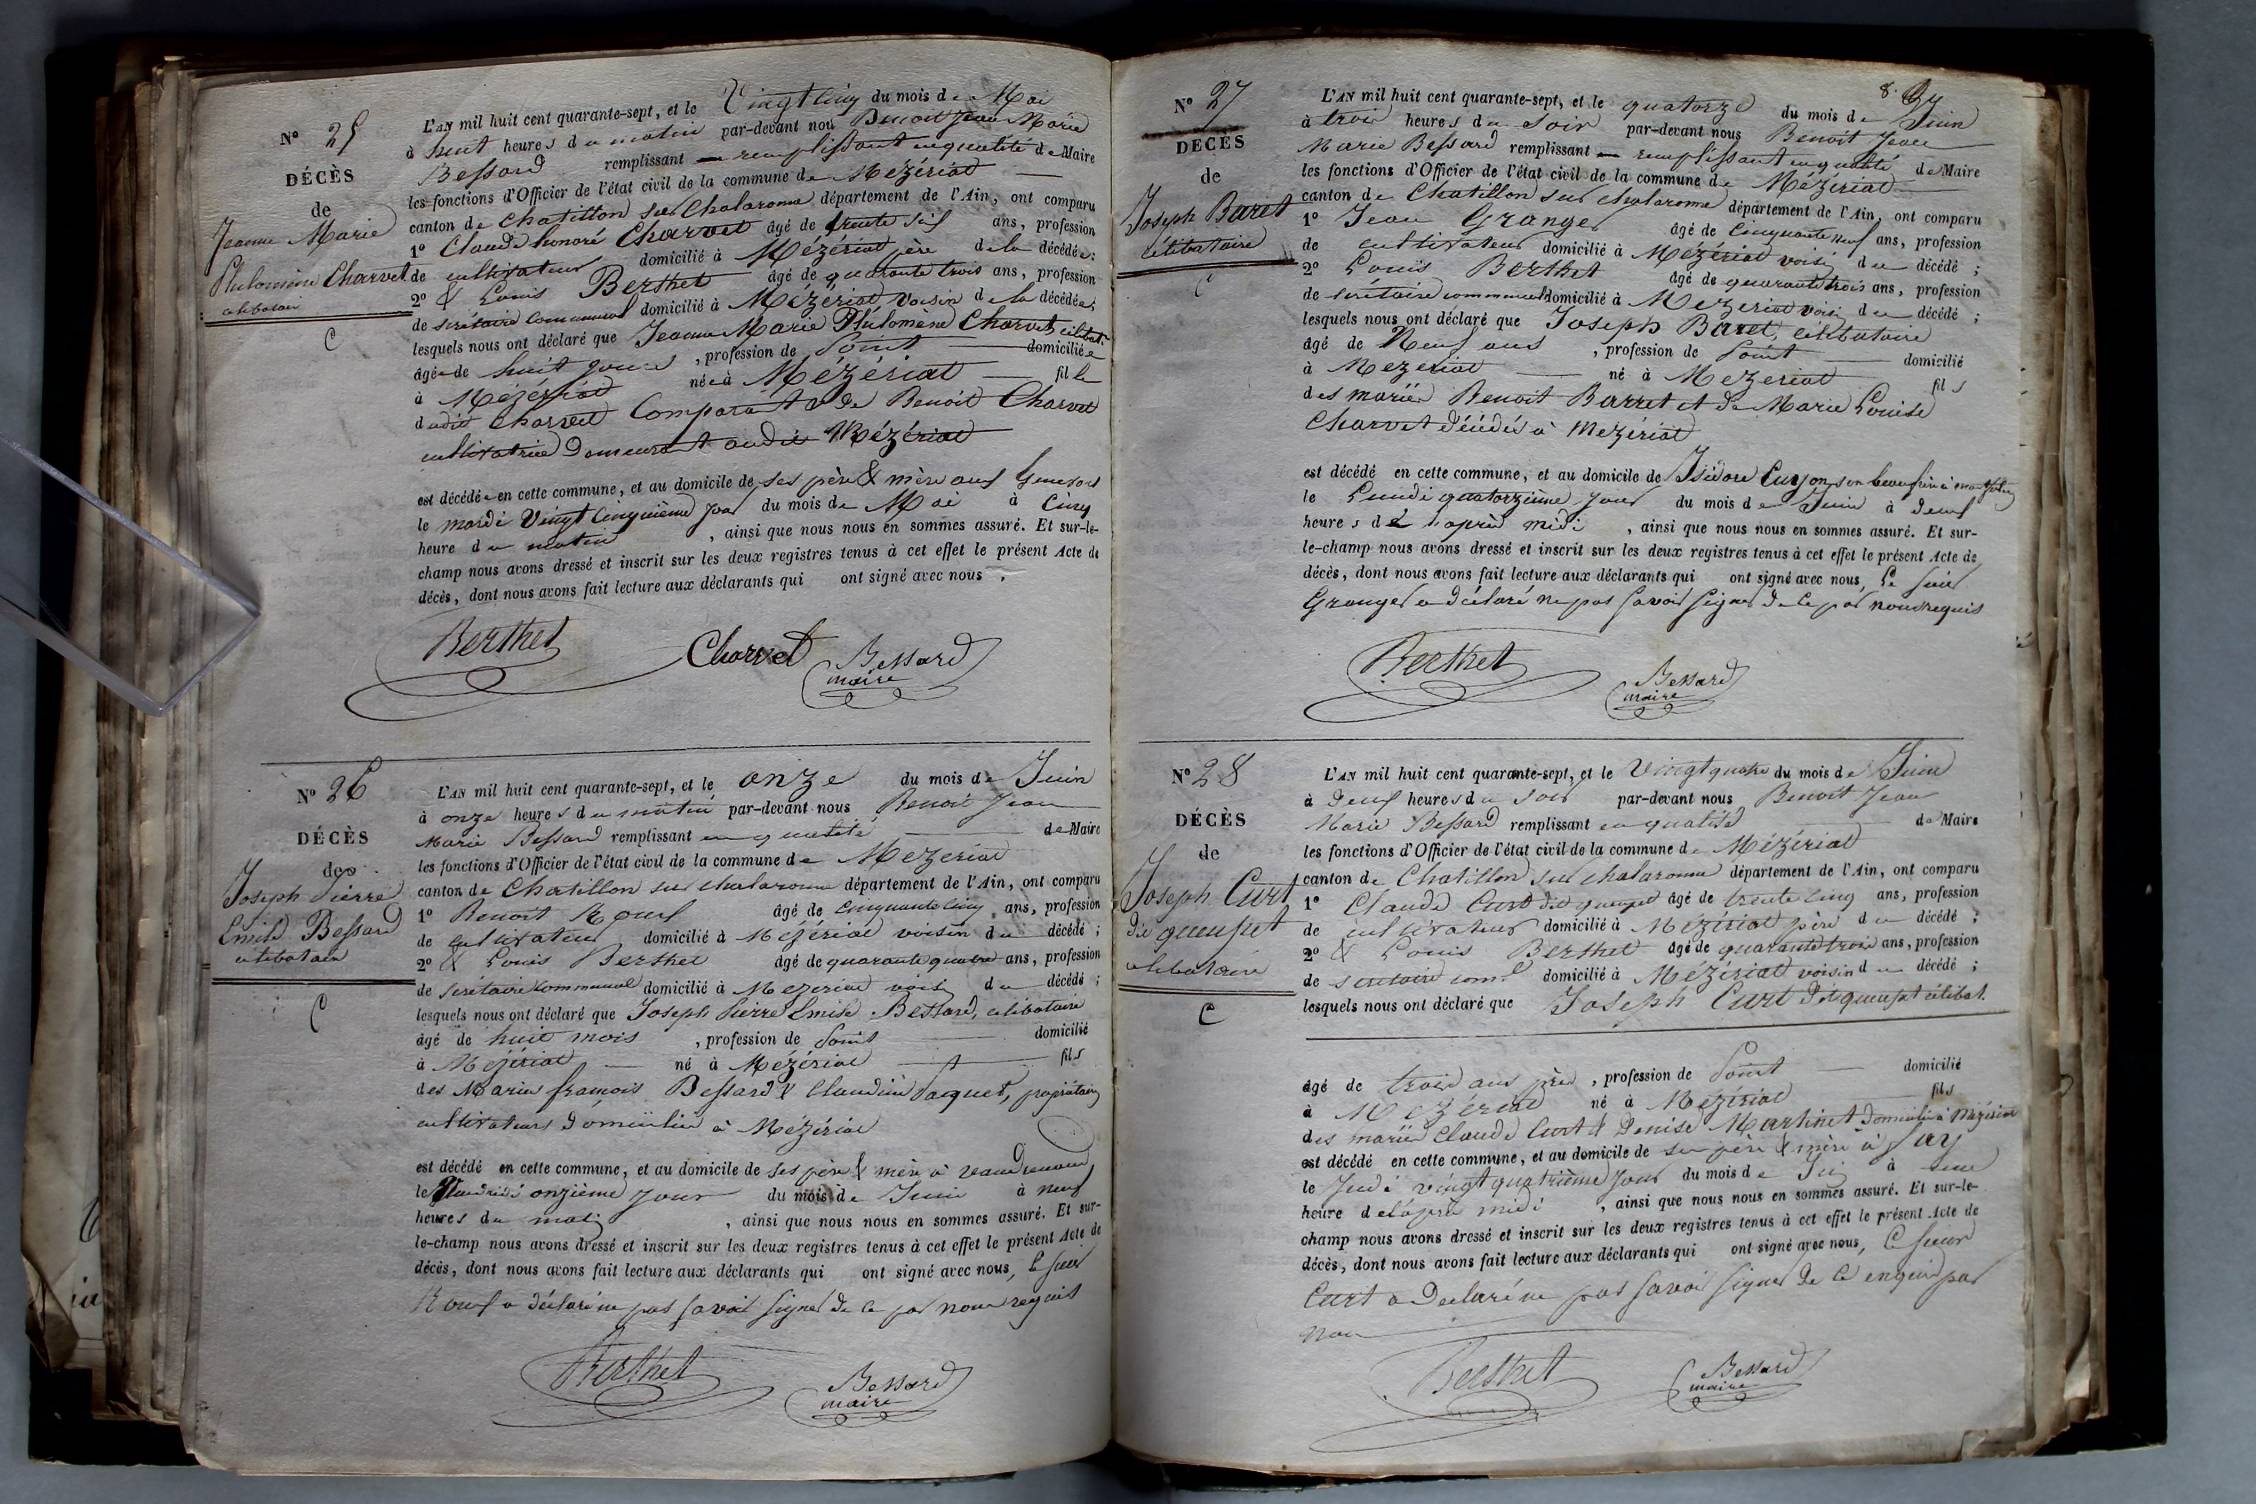 N° 25
DÉCÈS
de
Jeanne Marie
Philomène Charvet
célibatair
C
L'AN mil huit cent quarante-sept, et le Vingt cinq du mois de Mai
à huit heures du matin par-devant nou Benoit Jean Marie
Bessard remplissant remplissant en qualité de Maire
les fonctions d'Officier de l'état civil de la commune de Mézériat
canton de Chatillon sur Chalaronne département de l'Ain, ont comparu
1° Claude honoré Charvet âgé de trente six ans, profession
de cultivateur domicilié à Mézériat père de la décédée;
2° & Louis Berthet âgé de quarante trois ans, profession
de secrétaire communal domicilié à Mézériat voisin de la décédée;
lesquels nous ont déclaré que Jeanne Marie Philomène Charvet célibat.
âgée de huit jours , profession de Point domiciliée
à Mézériat née à Mézériat fille
dudit Charvet Comparant & de Benoit Charvet
cultivatrice Demeurant audit Mézériat
est décédée en cette commune, et au domicile de ses père & mère aux
le mardi Vingt cinquième jour du mois de Mai à Cinq
heure du matin , ainsi que nous nous en sommes assuré. Et sur-le-
champ nous avons dressé et inscrit sur les deux registres tenus à cet effet le présent Acte de
décès, dont nous avons fait lecture aux déclarants qui ont signé avec nous .
Berthet Charvet Bessard
maire
N° 26
DÉCÈS
de
Joseph Pierre
Emile Bessard
célibatair
C
L'AN mil huit cent quarante-sept, et le onze du mois de Juin
à onze heures du matin par-devant nous Benoit Jean
Marie Bessard remplissant en qualité de Maire
les fonctions d'Officier de l'état civil de la commune de Mézériat
canton de Chatillon sur chalaronne département de l'Ain, ont comparu
1° Benoit Roux âgé de cinquante cinq ans, profession
de cultivateur domicilié à Mézériat voisin du décédé ;
2° & Louis Berthet âgé de quarante quatre ans, profession
de secrétaire communal domicilié à Mézériat voisi du décédé ;
lesquels nous ont déclaré que Joseph Pierre Emile Bessard, célibataire
âgé de huit mois , profession de Point domicilié
à Mézériat né à Mézériat fils
des Mariés françois Bessard & Claudine Paquet, propriétaires
cultivateurs Domiciliés à Mézériat
est décédé en cette commune, et au domicile de ses père & mère à
le Vendredi onzième jour du mois de Juin à neuf
heures du mati , ainsi que nous nous en sommes assuré. Et sur-
le-champ nous avons dressé et inscrit sur les deux registres tenus à cet effet le présent Acte de
décès, dont nous avons fait lecture aux déclarants qui ont signé avec nous, le sieur
Roux a déclaré ne pas savoir signer de ce par nous requis
Berthet Bessard
maire
N° 27
DÉCÈS
de
Joseph Baret
célibataire
C
8.
L'AN mil huit cent quarante-sept, et le quatorze du mois de Juin
à trois heures du soir par-devant nous Benoit Jean
Marie Bessard remplissant remplissant en qualité de Maire
les fonctions d'Officier de l'état civil de la commune de Mézériat
canton de Chatillon sur chalaronne département de l'Ain, ont comparu
1° Jean Granger âgé de cinquante neuf ans, profession
de cultivateur domicilié à Mézériat voisi du décédé ;
2° Louis Berthet âgé de quarante trois ans, profession
de secrétaire communal domicilié à Mézériat voisi du décédé ;
lesquels nous ont déclaré que Joseph Baret, célibataire
âgé de Neuf ans , profession de Point domicilié
à Mezeriat né à Mezeriat fils
des mariés Benoit Barret et de Marie Louise
Charvet Décédés à Mezériat
est décédé en cette commune, et au domicile de Isidore Curson son beaufrère à
le Lundi quatorzième jour du mois de Juin à deux
heures de l'après midi , ainsi que nous nous en sommes assuré. Et sur-
le-champ nous avons dressé et inscrit sur les deux registres tenus à cet effet le présent Acte de
décès, dont nous avons fait lecture aux déclarants qui ont signé avec nous, Le sieur
Granger a déclaré ne pas savoir signer de ce par nous requis
Berthet Bessard
maire
N° 28
DÉCÈS
de
Joseph Curt
célibataire
C
L'AN mil huit cent quarante-sept, et le Vingt quatre du mois de Juin
à Deux heures du soir par-devant nous Benoit Jean
Marie Bessard remplissant en qualité de Maire
les fonctions d'Officier de l'état civil de la commune de Mézériat
canton de Chatillon sur chalaronne département de l'Ain, ont comparu
1° Claude Curt dit âgé de trente cinq ans, profession
de cultivateur domicilié à Mézériat père du décédé ;
2° & Louis Berthet âgé de quarante trois ans, profession
de secrétaire coml domicilié à Mézériat voisin du décédé ;
lesquels nous ont déclaré que Joseph Curt dit célibat.
âgé de trois ans , profession de Point domicilié
à Mézériat né à Mézériat fils
des mariés Claude Curt & Denise Martinet Domiciliés à Mézériat
est décédé en cette commune, et au domicile de ses père & mère à
le Jeudi vingt quatrième jour du mois de Jui à une
heure de l'après midi , ainsi que nous nous en sommes assuré. Et sur-le-
champ nous avons dressé et inscrit sur les deux registres tenus à cet effet le présent Acte de
décès, dont nous avons fait lecture aux déclarants qui ont signé avec nous, le sieur
Curt a Déclaré ne pas savoir signer de ce enquis par
nou
Berthet Bessard
maire